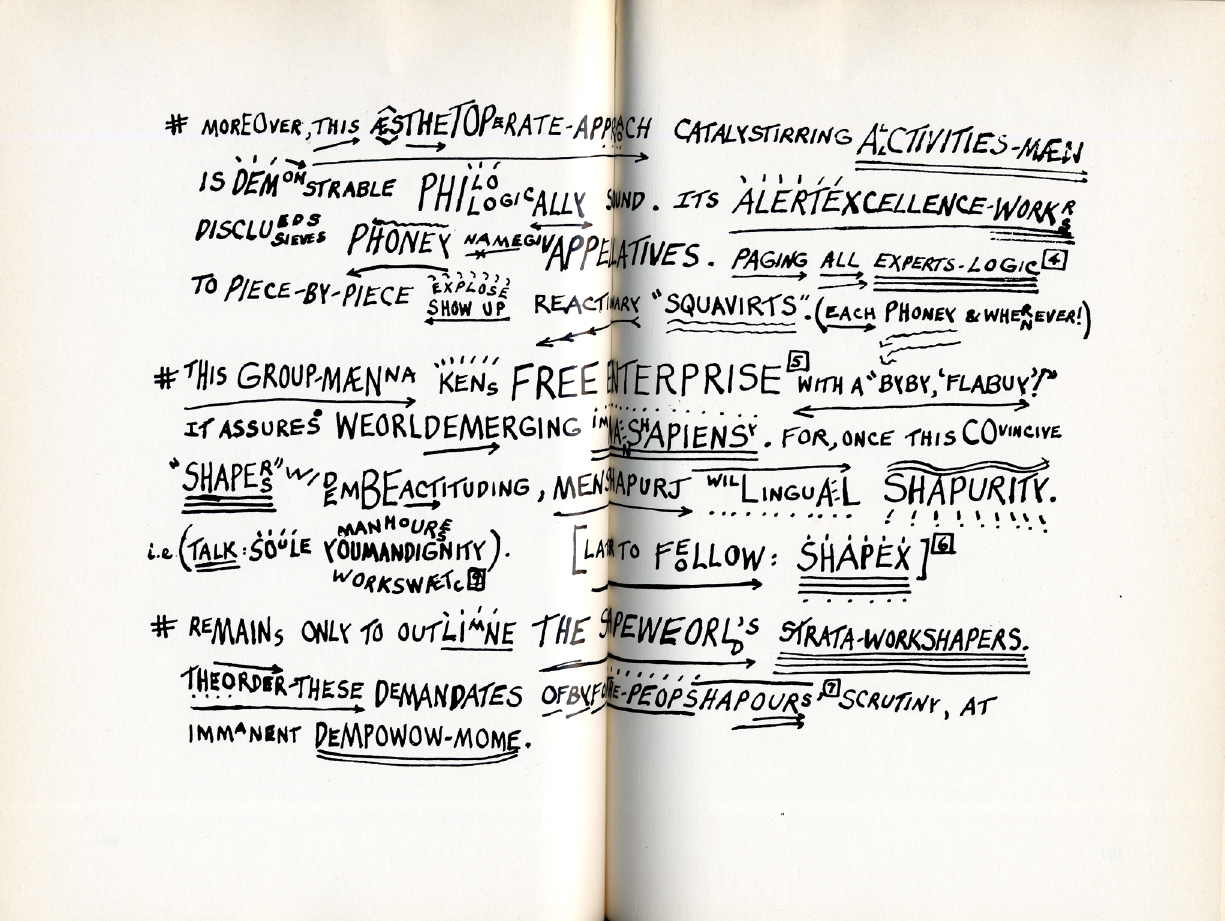 # MOREOVER, THIS ÆSTHETOPERATE-APPROACH CATALYSTIRRING ACTIVITIES-MÆN
IS DEMONSTRABLE PHILOLOGICALLY SOUND. ITS ALERTEXCELLENCE-WORKRS
DISCLUEDS SIEVES PHONEY NAMEGIV APPELLATIVES. PAGING ALL EXPERTS-LOGIC 4
TO PIECE-BY-PIECE EXPLOSE SHOW UP REACTIONARY "SQUAVIRTS". (EACH PHONEY & WHERNEVER!)
# THIS GROUP-MÆNNA 'KENS FREE ENTERPRISE 5 WITH A "BYBY, 'FLABUY'?"
IT ASSURES WEORLDEMERGING SHAPIENSY. FOR, ONCE THIS COVINCIVE
"SHAPERS" W/ DEMBEACTITUDING, MENSHAPURJ WILLINGUAL SHAPURITY.
i.e (TALK: SOULE MANHOURES YOUMANDIGNITY WORKSWÆTC 9). [LATR TO FEOLLOW: SHAPEX] 6
# REMAINS ONLY TO OUTLIMNE THE SHAPEWEORLD'S STRATA-WORKSHAPERS.
THEORDER-THESE DEMANDATES OFBYFORE-PEOPSHAPOURS, 7 SCRUTINY, AT
IMMANENT DEMPOWOW-MOME.